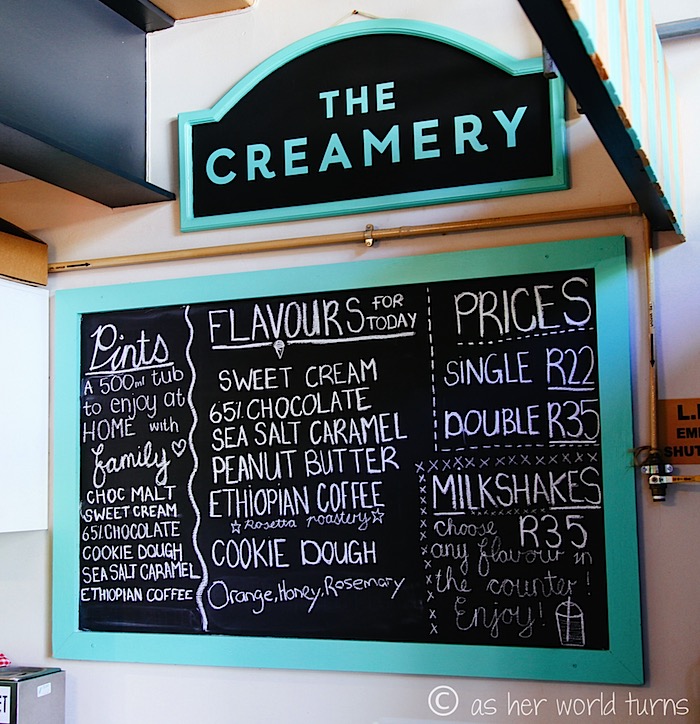 THE
CREAMERY
Pints
A 500ml tub
to enjoy at
HOME with
family
CHOC MALT
SWEET CREAM
65% CHOCOLATE
COOKIE DOUGH
SEA SALT CARAMEL
ETHIOPIAN COFFEE
FLAVOURS FOR TODAY
SWEET CREAM
65% CHOCOLATE
SEA SALT CARAMEL
PEANUT BUTTER
ETHIOPIAN COFFEE
Rosetta roastery
COOKIE DOUGH
Orange, Honey, Rosemary
PRICES
SINGLE R22
DOUBLE R35
MILKSHAKES
choose R35
any flavour in
the counter!
Enjoy!
L.
EM
SHUT
ET
© as her world turns